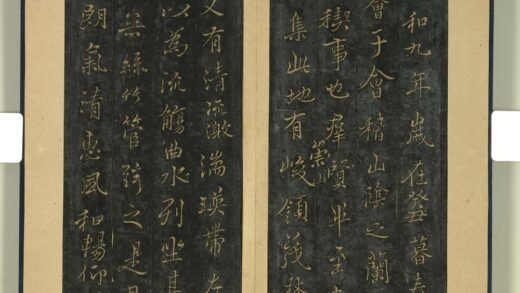 和九年歲在癸丑暮春
會于會稽山陰之蘭
稧事也群賢畢至
集此地有崇山峻領茂林
又有清流激湍暎帶左
以為流觴曲水列坐其
無絲竹管弦之是日
朗氣清惠風和暢仰